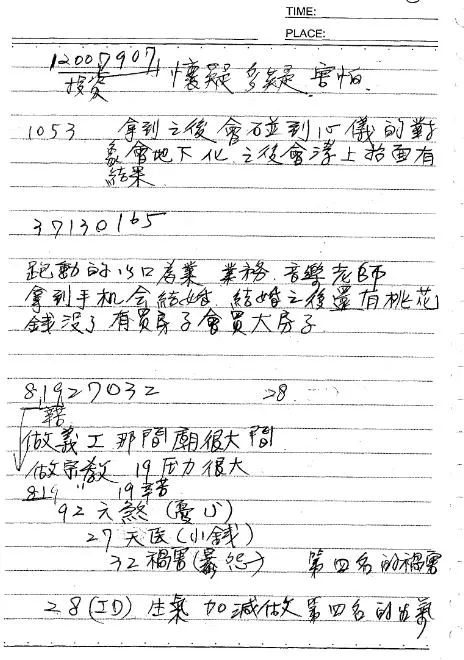 TIME:
PLACE:
12007907
投資 懷疑 多疑 害怕
1053 拿到之後會碰到心儀的對
象會地下化 之後會浮上抬面有
結果
37130165
跑動的以口為業 業務 音樂老師
拿到手机会結婚 結婚之後還有桃花
錢沒了有買房子會買大房子
81927032 28
辛苦
做義工那間廟很大間
做宗教 19压力很大
819 19辛苦
92六煞(憂心)
27天医(小錢)
32禍害( 怨) 第四名的禍害
28(ID) 生氣 加減做 第四名的生氣